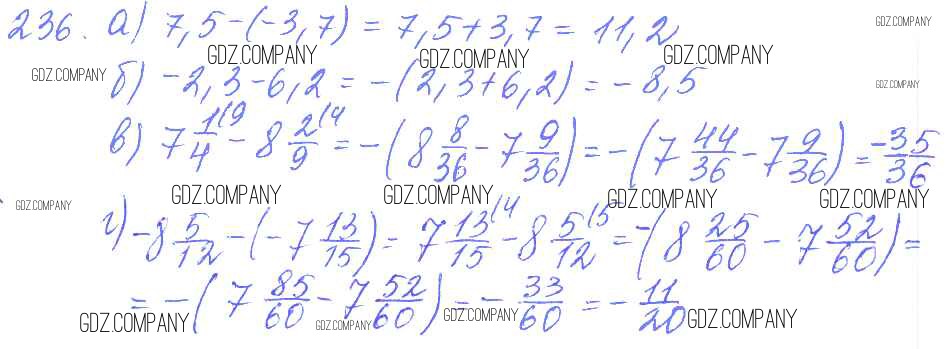 236. а) 7,5 - (-3,7) = 7,5 + 3,7 = 11,2
GDZ.COMPANY
GDZ.COMPANY GDZ.COMPANY GDZ.COMPANY
GDZ.COMPANY б) -2,3 - 6,2 = -(2,3 + 6,2) = -8,5 GDZ.COMPANY
в) 7 1/4 (9 - 8 2/9 (4 = -(8 8/36 - 7 9/36) = -(7 44/36 - 7 9/36) = -35/36
GDZ.COMPANY GDZ.COMPANY GDZ.COMPANY GDZ.COMPANY
GDZ.COMPANY г) -8 5/12 - (-7 13/15) = 7 13/15 (4 - 8 5/12 (5 = -(8 25/60 - 7 52/60) =
= -(7 85/60 - 7 52/60) = -33/60 = -11/20
GDZ.COMPANY GDZ.COMPANY GDZ.COMPANY GDZ.COMPANY